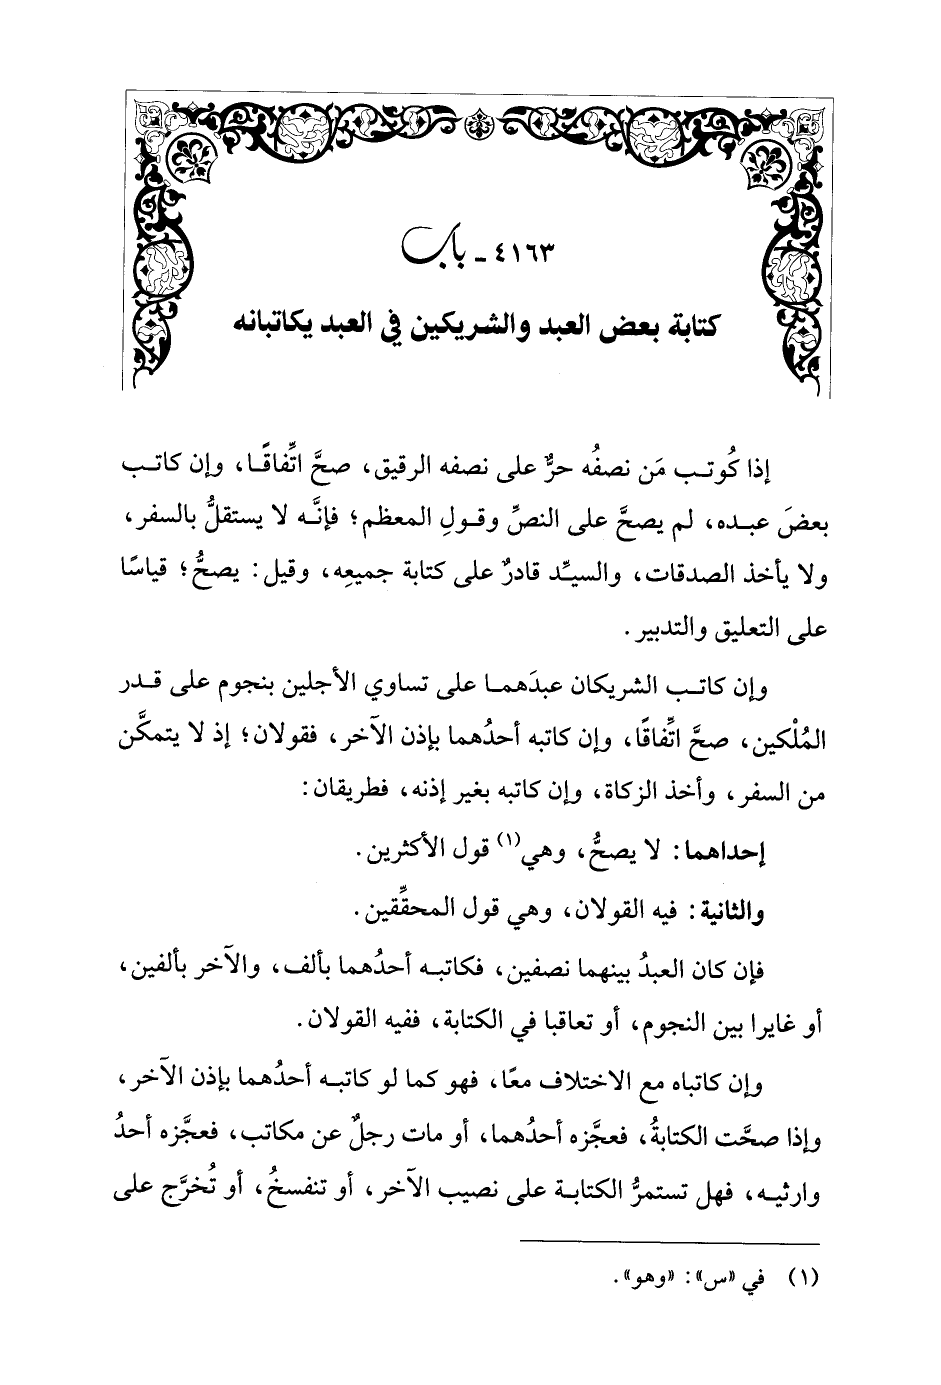 ٤١٦٣ - باب
كتابة بعض العبد والشريكين في العبد يكاتبانه
إذا كُوتب مَن نصفُه حرٌّ على نصفه الرقيق، صحَّ اتِّفاقًا، وإن كاتب
بعضَ عبده، لم يصحَّ على النصِّ وقولِ المعظم؛ فإنَّه لا يستقلُّ بالسفر،
ولا يأخذ الصدقات، والسيِّد قادرٌ على كتابة جميعِه، وقيل: يصحُّ؛ قياسًا
على التعليق والتدبير.
وإن كاتب الشريكان عبدَهما على تساوي الأجلين بنجوم على قدر
المُلْكين، صحَّ اتِّفاقًا، وإن كاتبه أحدُهما بإذن الآخر، فقولان؛ إذ لا يتمكَّن
من السفر، وأخذ الزكاة، وإن كاتبه بغير إذنه، فطريقان:
إحداهما: لا يصحُّ، وهي(١) قول الأكثرين.
والثانية: فيه القولان، وهي قول المحقِّقين.
فإن كان العبدُ بينهما نصفين، فكاتبه أحدُهما بألف، والآخر بألفين،
أو غايرا بين النجوم، أو تعاقبا في الكتابة، ففيه القولان.
وإن كاتباه مع الاختلاف معًا، فهو كما لو كاتبه أحدُهما بإذن الآخر،
وإذا صحَّت الكتابةُ، فعجَّزه أحدُهما، أو مات رجلٌ عن مكاتب، فعجَّزه أحدُ
وارثيه، فهل تستمرُّ الكتابة على نصيب الآخر، أو تنفسخُ، أو تُخرَّج على
(١) في «س»: «وهو».